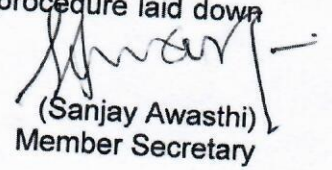 procedure laid down
(Sanjay Awasthi)
Member Secretary